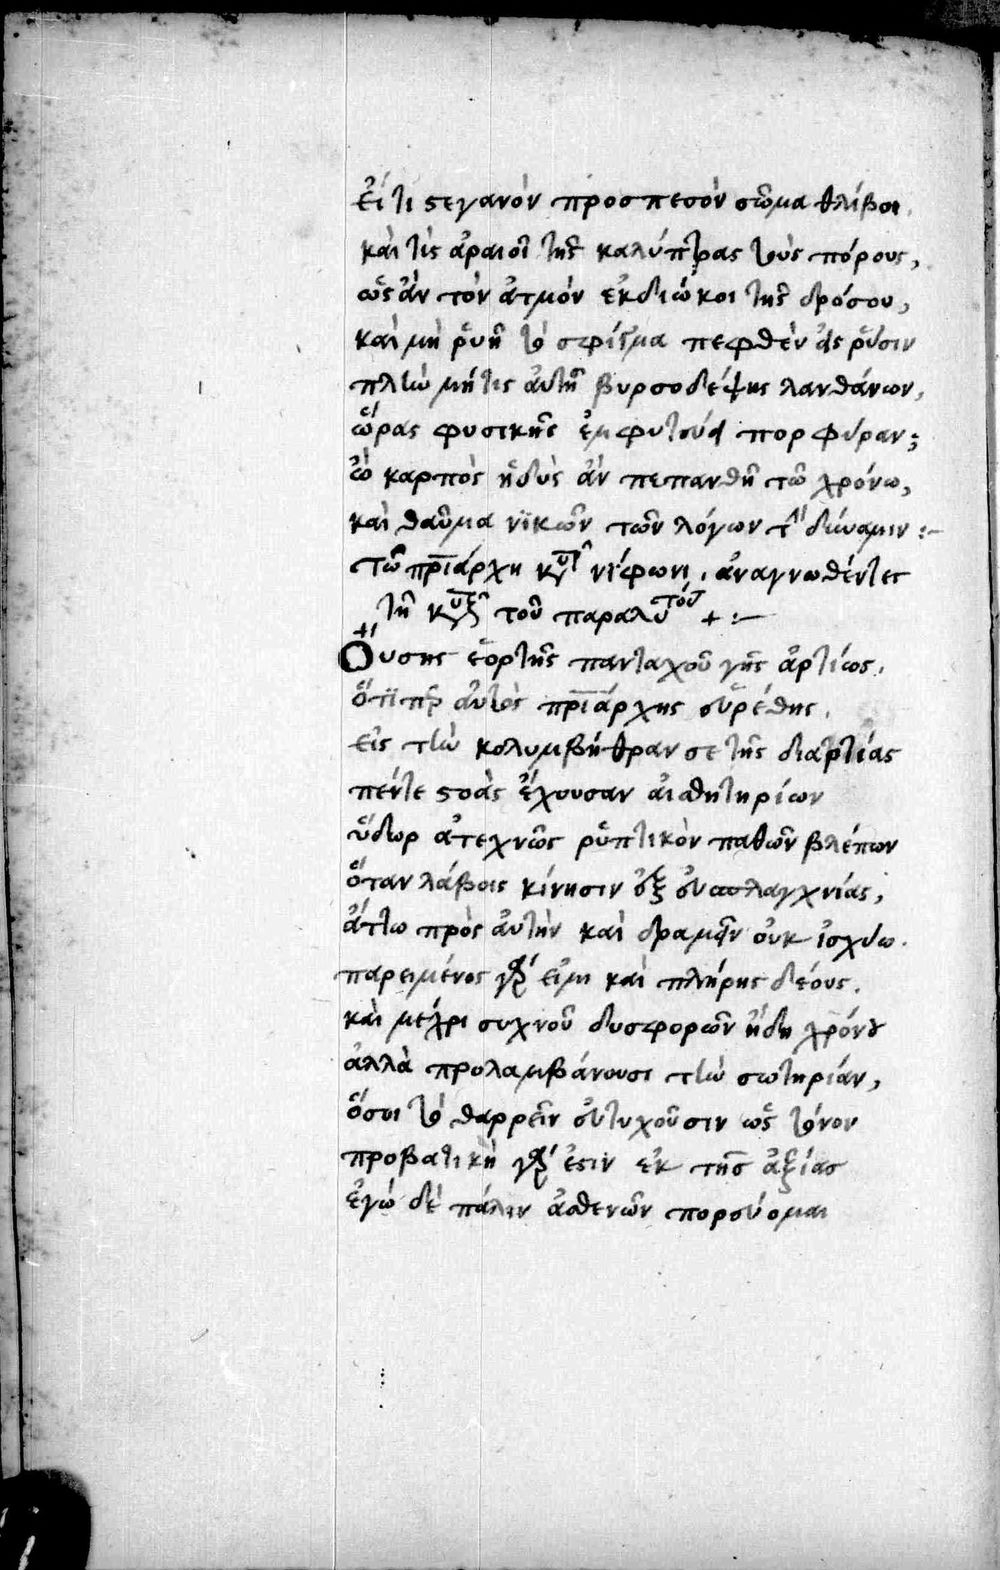 εἴ τι στεγανὸν προσπεσὸν σῶμα θλίβοι.
καὶ τίς ἀραιοῖ τῆς καλύπτρας τοὺς πόρους,
ὡς ἂν τὸν ἀτμὸν ἐκδιώκοι τῆς δρόσου,
καὶ μὴ ῥυῆ τὸ πεφθὲν εἰς ῥύσιν
πλὴν μήτις αὐτῆ βυρσοδέψης λανθάνων,
ὥρας φυσικῆς πορφύραν;
ὁ καρπὸς ἡδὺς ἂν πεπανθῆ τῶ χρόνω,
καὶ θαῦμα νικῶν τῶν λόγων τὴν δύναμιν :-
Τῶ πριάρχη κυρῶ νίφωνι, ἀναγνωθέντες
τῆ κυριακῆ τοῦ παραλύτου + :-
Οὔσης ἑορτῆς πανταχοῦ γῆς ἀρτίως.
ὅτι πηρ αὐτὸς πριάρχης εὑρέθης.
εἰς τὴν κολυμβήθραν σε τῆς
πέντε στοὰς ἔχουσαν αἰσθητηρίων
ὕδωρ ἀτεχνῶς ῥυπτικὸν παθῶν βλέπων
ὅταν λάβοις κίνησιν ἐξ εὐσπλαγχνίας,
ἄττω πρὸς αὐτὴν καὶ δραμεῖν οὐκ ἰσχύω.
παρειμένος γάρ εἰμι καὶ πλήρης δέους.
καὶ μέχρι συχνοῦ δυσφορῶν ἤδη χρόνου
ἀλλὰ προλαμβάνουσι τὴν σωτηρίαν,
ὅσοι τὸ θαρρεῖν εὐτυχοῦσιν ὡς τόνον
προβατικὴ γάρ ἐστιν ἐκ τῆς ἀξίας
ἐγὼ δὲ πάλιν ἀσθενῶν πορεύομαι